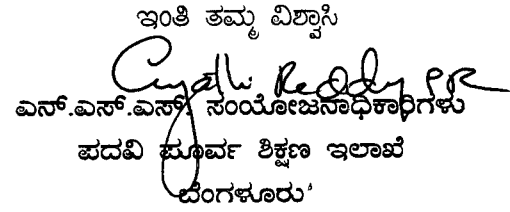 ಇಂತಿ ತಮ್ಮ ವಿಶ್ವಾಸಿ
Reddy
ಎನ್.ಎಸ್.ಎಸ್. ಸಂಯೋಜನಾಧಿಕಾರಿಗಳು
ಪದವಿ ಪೂರ್ವ ಶಿಕ್ಷಣ ಇಲಾಖೆ
ಬೆಂಗಳೂರು